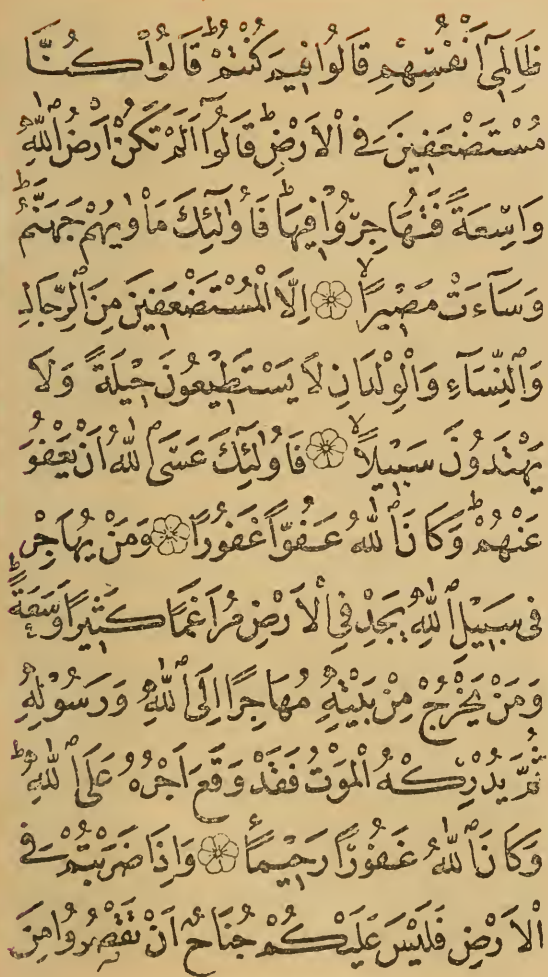 ظَالِمِىٓ اَنْفُسِهِمْ قَالُوا فِيمَ كُنْتُمْ ط قَالُوا كُنَّا
مُسْتَضْعَفِينَ فِى الْاَرْضِ ط قَالُوٓا اَلَمْ تَكُنْ اَرْضُ اللّٰهِ
وَاسِعَةً فَتُهَاجِرُوا فِيهَا ط فَاُولٰٓئِكَ مَاْوٰيهُمْ جَهَنَّمُ ط
وَسَآءَتْ مَصِيرًا ۙ اِلَّا الْمُسْتَضْعَفِينَ مِنَ الرِّجَالِ
وَالنِّسَآءِ وَالْوِلْدَانِ لَا يَسْتَطِيعُونَ حِيلَةً وَلَا
يَهْتَدُونَ سَبِيلًا ۙ فَاُولٰٓئِكَ عَسَى اللّٰهُ اَنْ يَعْفُوَ
عَنْهُمْ ط وَكَانَ اللّٰهُ عَفُوًّا غَفُورًا وَمَنْ يُهَاجِرْ
فِى سَبِيلِ اللّٰهِ يَجِدْ فِى الْاَرْضِ مُرَاغَمًا كَثِيرًا وَسَعَةً ط
وَمَنْ يَخْرُجْ مِنْ بَيْتِهِ مُهَاجِرًا اِلَى اللّٰهِ وَرَسُولِهِ
ثُمَّ يُدْرِكْهُ الْمَوْتُ فَقَدْ وَقَعَ اَجْرُهُ عَلَى اللّٰهِ ط
وَكَانَ اللّٰهُ غَفُورًا رَحِيمًا وَاِذَا ضَرَبْتُمْ فِى
الْاَرْضِ فَلَيْسَ عَلَيْكُمْ جُنَاحٌ اَنْ تَقْصُرُوا مِنَ